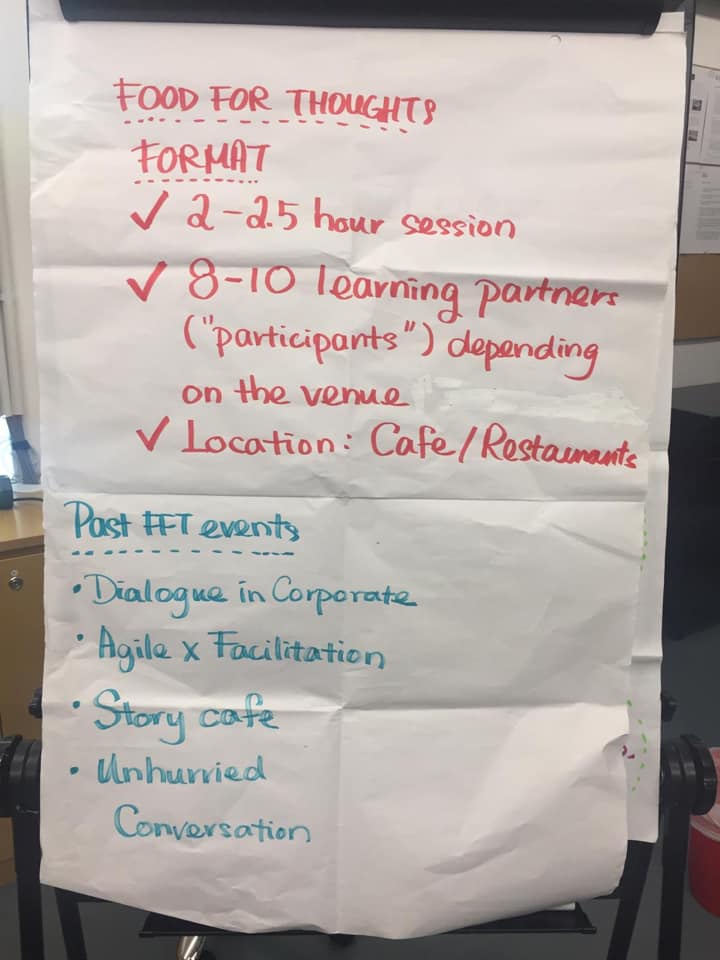 FOOD FOR THOUGHTS
FORMAT
✓ 2-2.5 hour session
✓ 8-10 learning partners
("participants") depending
on the venue
✓ Location: Cafe/Restaurants
Past FFT events
• Dialogue in Corporate
• Agile x Facilitation
• Story cafe
• Unhurried
Conversation